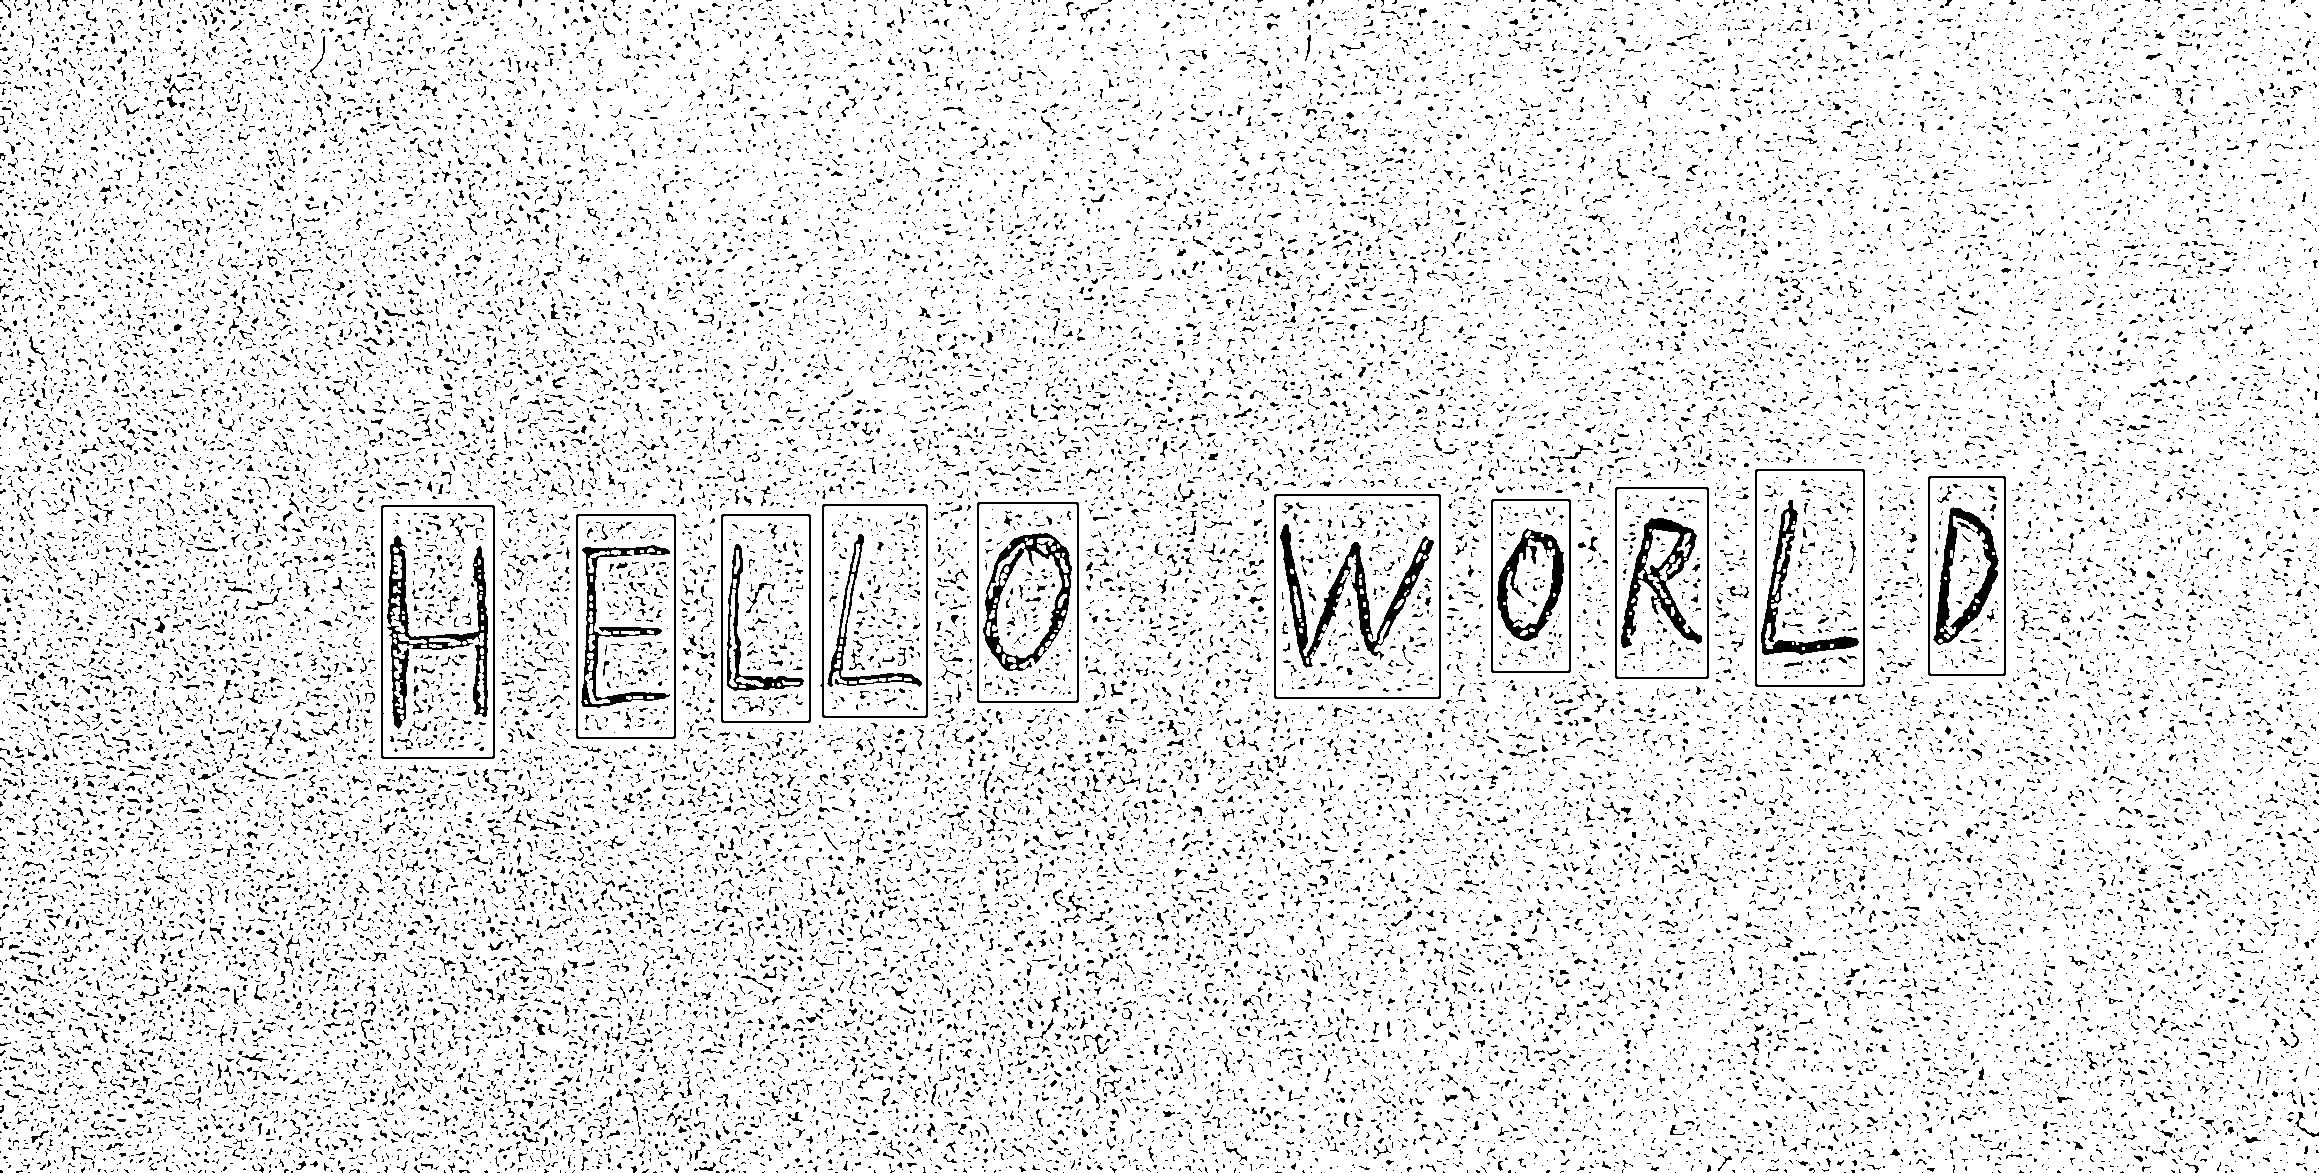 HELLO WORLD